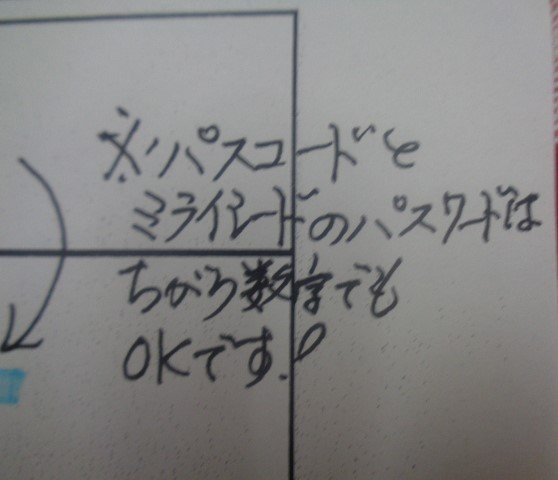 ※パスコードと
ミライシードのパスワードは
ちがう数字でも
OKです!